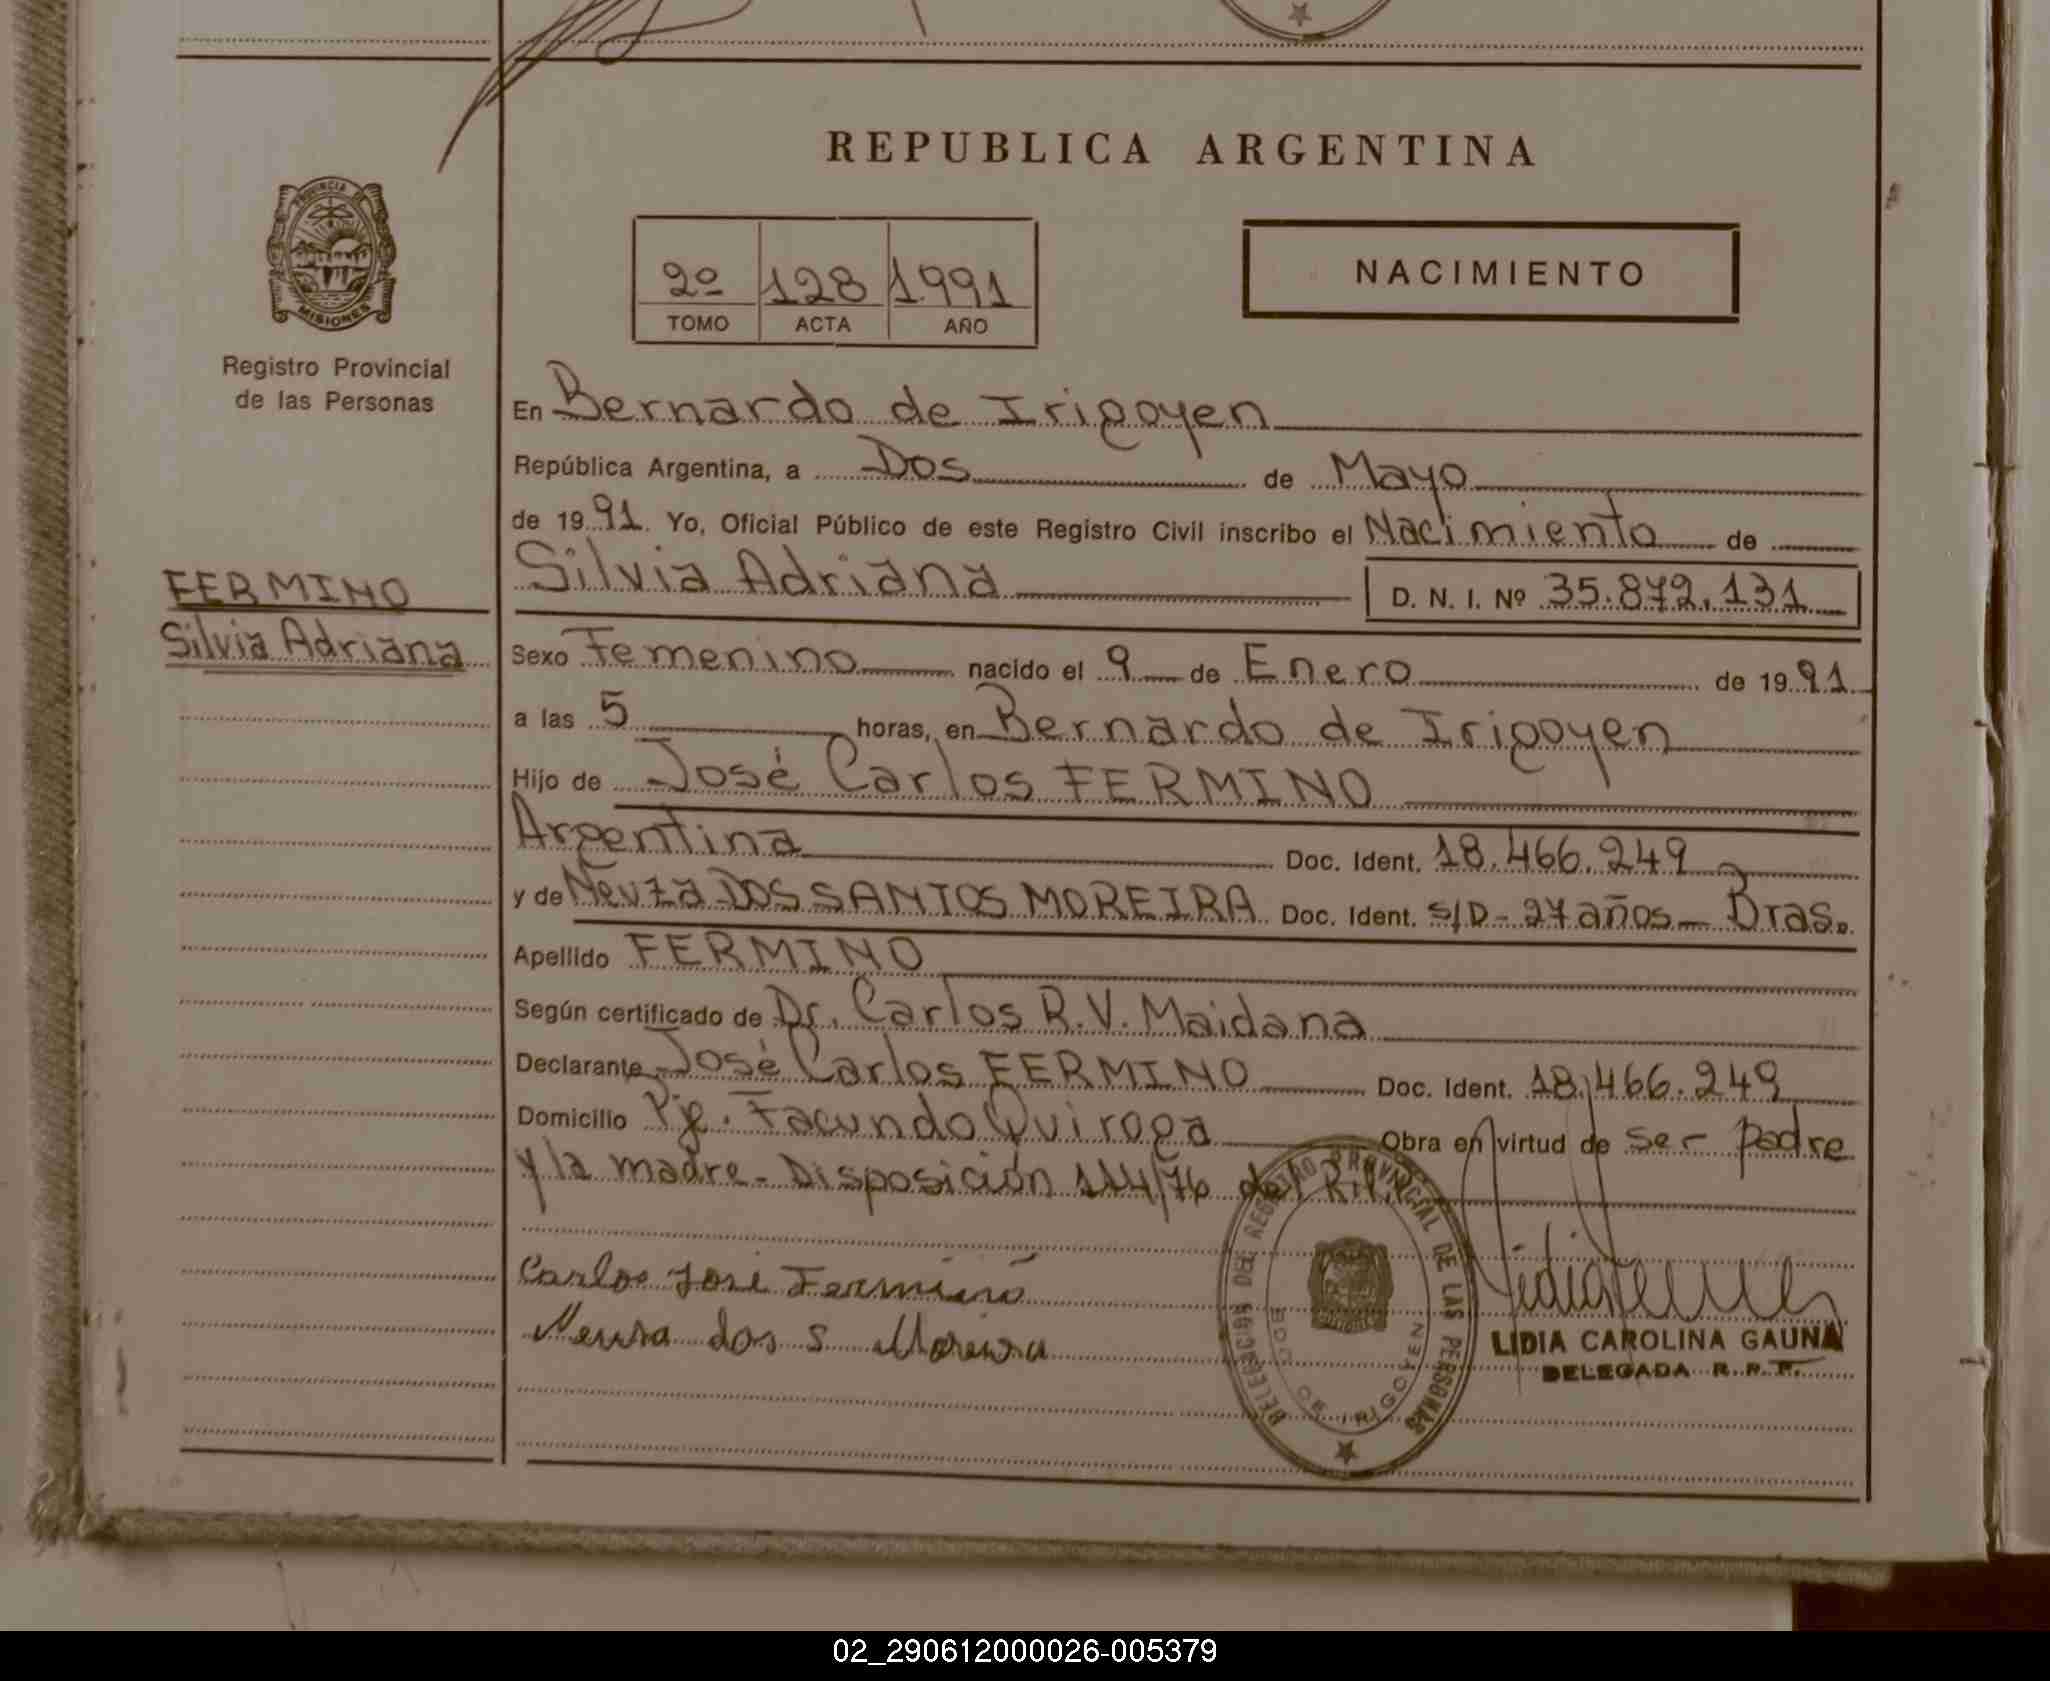 REPUBLICA ARGENTINA
PROVINCIA DE
MISIONES
Registro Provincial
de las Personas
2º 128 1991
TOMO ACTA AÑO
NACIMIENTO
En Bernardo de Irigoyen
República Argentina, a Dos de Mayo
de 1991. Yo, Oficial Público de este Registro Civil inscribo el Nacimiento de
Silvia Adriana D. N. I. Nº 35.872.131
FERMINO
Silvia Adriana
Sexo Femenino nacido el 9 de Enero de 1991
a las 5 horas, en Bernardo de Irigoyen
Hijo de José Carlos FERMINO
Argentina Doc. Ident. 18.466.249
y de Neuza DOS SANTOS MOREIRA Doc. Ident. S/D - 27 años - Bras.
Apellido FERMINO
Según certificado de Dr. Carlos R. V. Maidana
Declarante José Carlos FERMINO Doc. Ident. 18.466.249
Domicilio Pje. Facundo Quiroga Obra en virtud de ser padre
y la madre - Disposición 114/76 del R.P.P.
DELEGACION DEL REGISTRO PROVINCIAL DE LAS PERSONAS
BDO. DE IRIGOYEN
Carlos José Fermino
Neusa dos S Moreira
LIDIA CAROLINA GAUNA
DELEGADA R. P. P.
02_290612000026-005379